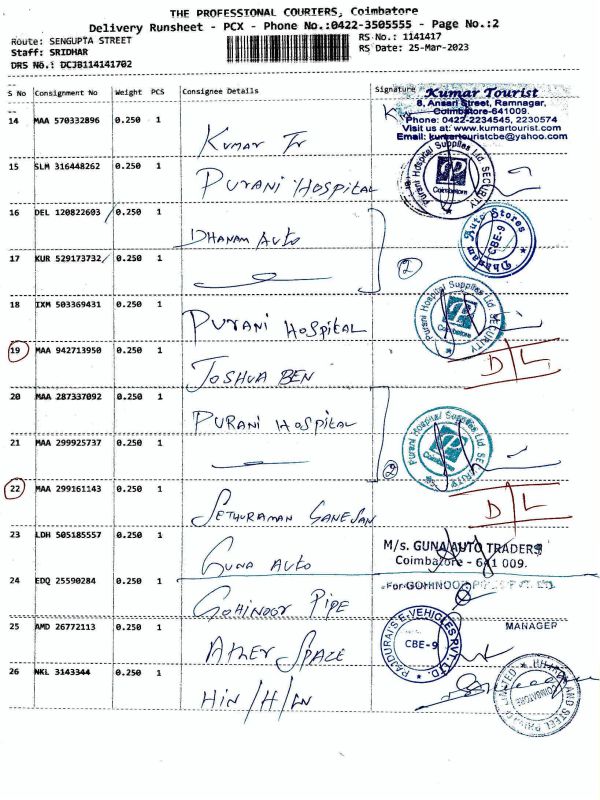 THE PROFESSIONAL COURIERS, Coimbatore
Delivery Runsheet - PCX - Phone No.:0422-3505555 - Page No.:2
Route: SENGUPTA STREET
RS No.: 1141417
Staff: SRIDHAR
RS Date: 25-Mar-2023
DRS No.: DCJB114141702
S No Consignment No Weight PCS Consignee Details Signature
Kumar Tourist
8, Ansari Street, Ramnagar,
Coimbatore-641009.
Phone: 0422-2234545, 2230574
Visit us at: www.kumartourist.com
Email: kumartouristcbe@yahoo.com
14 MAA 570332896 0.250 1 KUMAR Tr
15 SLM 316448262 0.250 1 PURANI HOSPITAL
Purani Hospital Supplies Ltd SECURITY
Coimbatore
16 DEL 120822603 0.250 1 DHANAM AUTO
Dhanam Auto Stores
CBE-9
17 KUR 529173732 0.250 1
2
18 IXM 503369431 0.250 1 PURANI HOSPITAL
Purani Hospital Supplies Ltd SECURITY
Coimbatore
19 MAA 942713950 0.250 1 JOSHUA BEN
D L
20 MAA 287337092 0.250 1 PURANI HOSPITAL
Purani Hospital Supplies Ltd SECURITY
Coimbatore
21 MAA 299925737 0.250 1
2
22 MAA 299161143 0.250 1 SETHURAMAN GANESAN
D L
23 LDH 505185557 0.250 1 GUNA AUTO
M/s. GUNA AUTO TRADERS
Coimbatore - 641 009.
24 EDQ 25590284 0.250 1 GOHINOOR PIPE
For GOHINOOR PIPES PVT. LTD.
MANAGER
25 AMD 26772113 0.250 1 ATHER SPACE
E-VEHICLES PVT. LTD.
CBE-9
26 NKL 3143344 0.250 1 HIN/H/LN
AND STEEL PRIVATE LIMITED
COIMBATORE